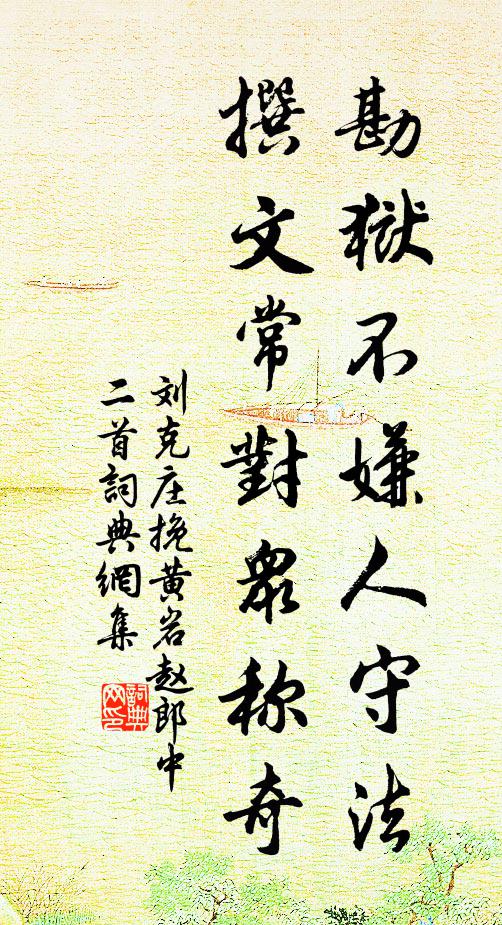 勘獄不嫌人守法
撰文常對衆称奇
刘克庄挽黄岩赵郎中
二首詞典網集
詞典
网印